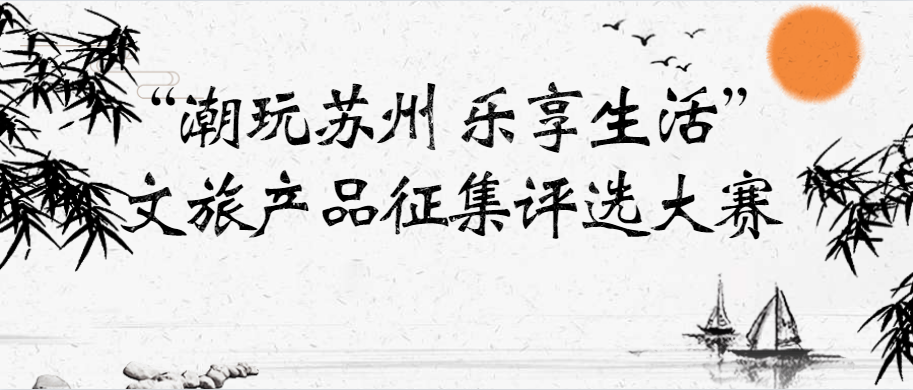 “潮玩苏州 乐享生活”
文旅产品征集评选大赛